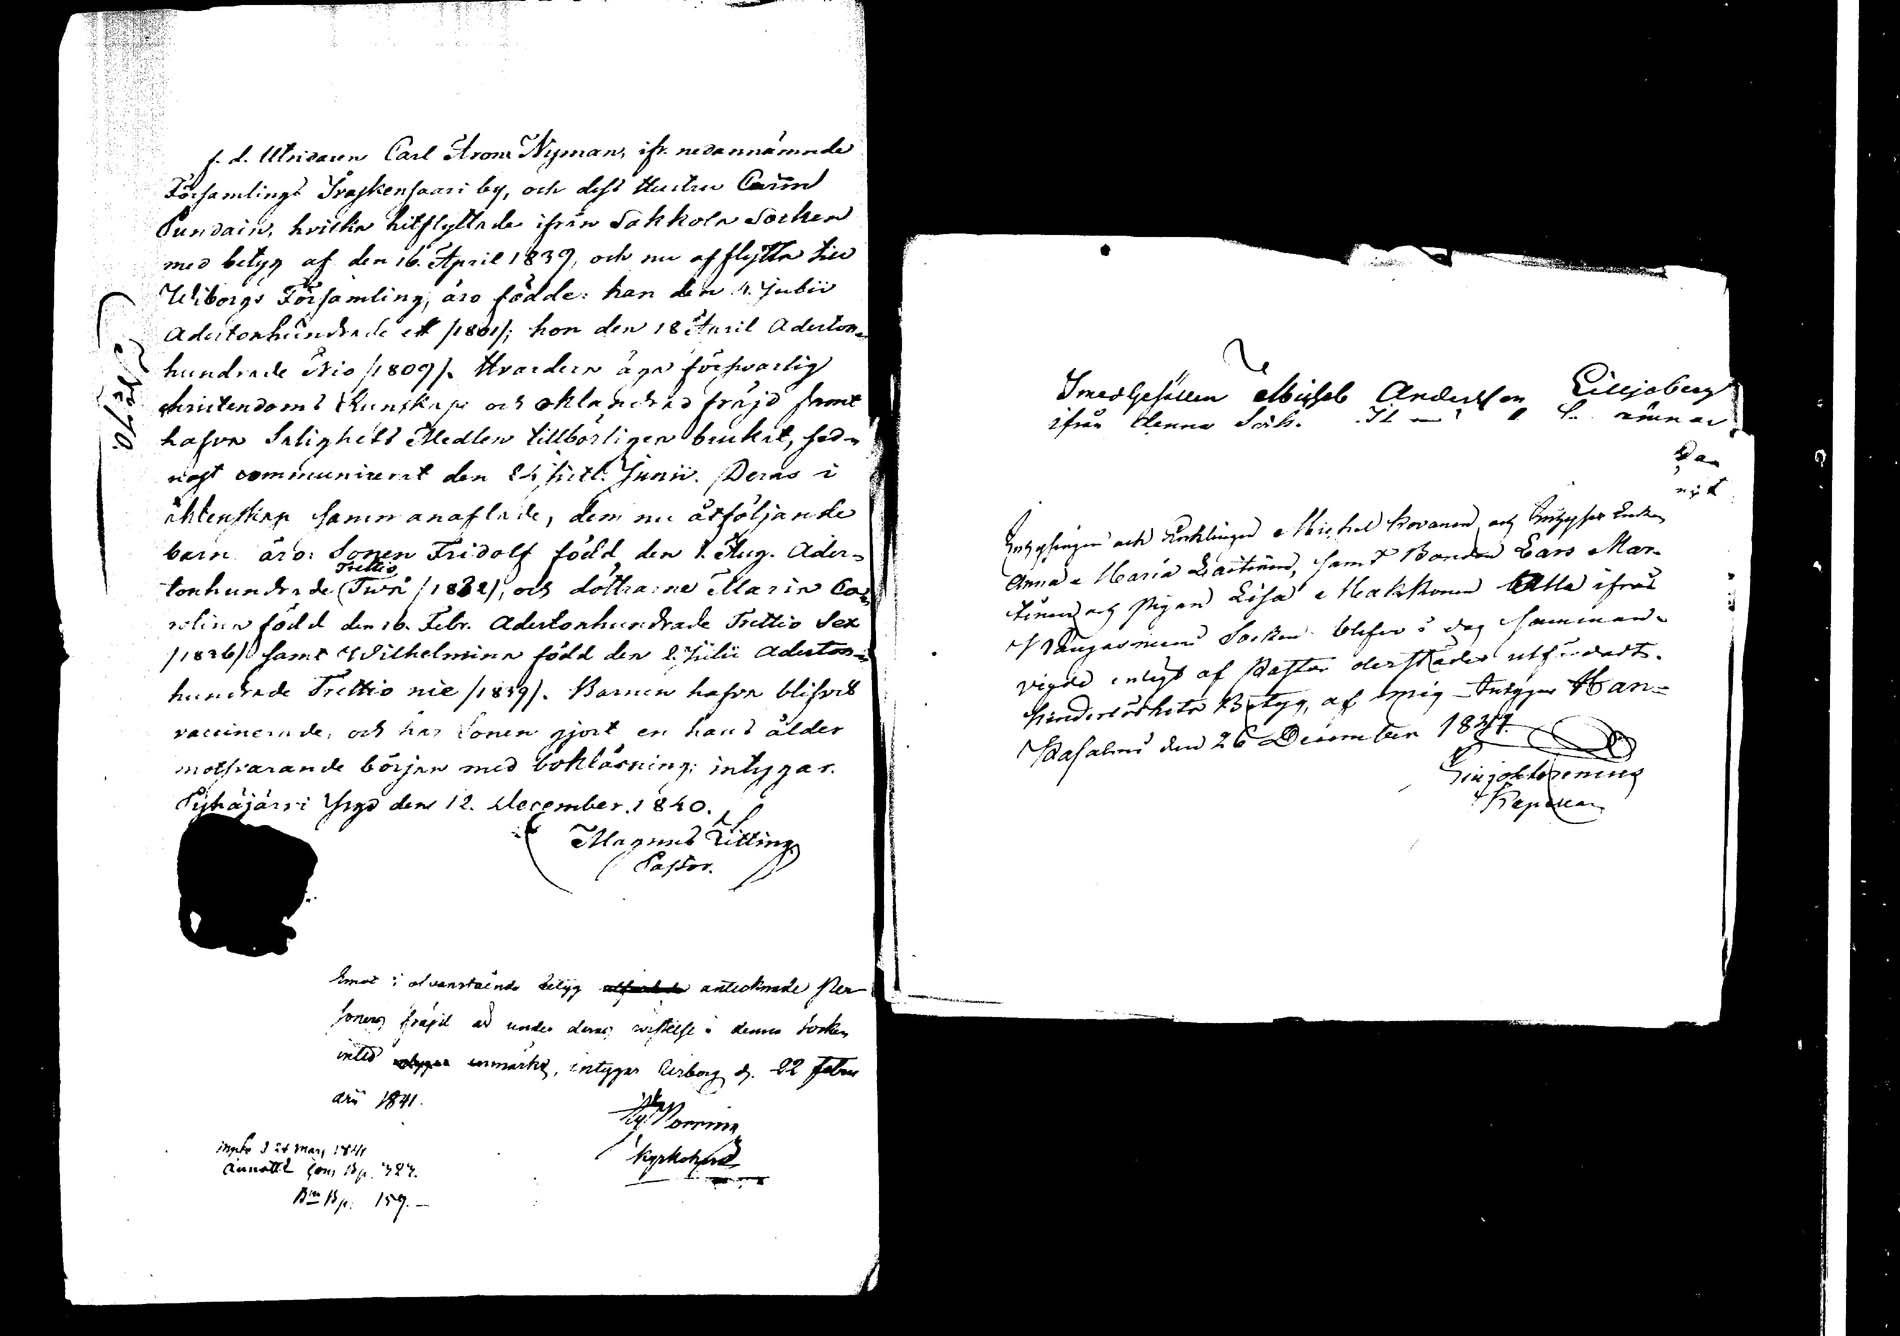 f. d. Utridaren Carl Arons Nyman, ifr. nedannämnde
Församlings Sraskensaari by, och dess Hustru Carin
Pundain, hvilka hitflyttade ifrån Sakkola Socken
med betyg af den 16. April 1839, och nu afflytta till
Wiborgs Församling, äro födde: han den 4. Julii
Adertonhundrade ett /1801/; hon den 18 April Aderton-
hundrade Nio /1809/. Hvardera äga försvarlig
christendoms kunskap och oklandrad fräjd samt
hafva Salighets Medlen tillbörligen brukat, sed-
nast communicerat den 24 sistl. Junii. Deras i
äktenskap sammanaflade, dem nu åtföljande
barn äro: Sonen Fridolf född den 1. Aug. Ader-
tonhundrade Trettio Två /1832/, och döttrarne Maria Ca-
rolina född den 16. Febr. Adertonhundrade Trettio Sex
/1836/ samt Wilhelmina född den 2 Julii Aderton-
hundrade Trettio nie /1839/. Barnen hafva blifvit
vaccinerade, och har Sonen gjort en hans ålder
motsvarande början med bokläsning; intygar.
Pyhäjärvi Prgd den 12. December 1840.
Magnus Zitting
Pastor.
Emot i ofvanstående betyg antecknade Per-
soners fräjd är under deras vistelse i denna Socken
intet anmärkt, intygar Wiborg d. 22 Febru
arii 1841.
Kyrkoherde
1841
Bp. 327.
Bp. 159.
Smedgesällen Michel Anderssen Liljeberg
ifrån denna Sock.
Enkling Michel
Anna Maria samt Bonden Lars Mar-
tinen och Pigan Lisa Makkonen alla ifrån
Kangasniemi Socken blefvo i dag samman-
vigde enligt af Pastor derstädes utfärdadt
hinderslöshets Betyg, af mig intygar Han-
kasalmi den 26 December 1837.
Kapellan